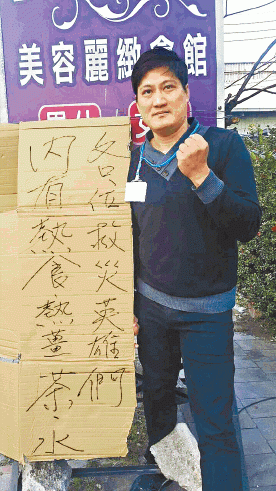 美容麗緻會館
各位救災英雄們
內有熱食熱薑茶，水